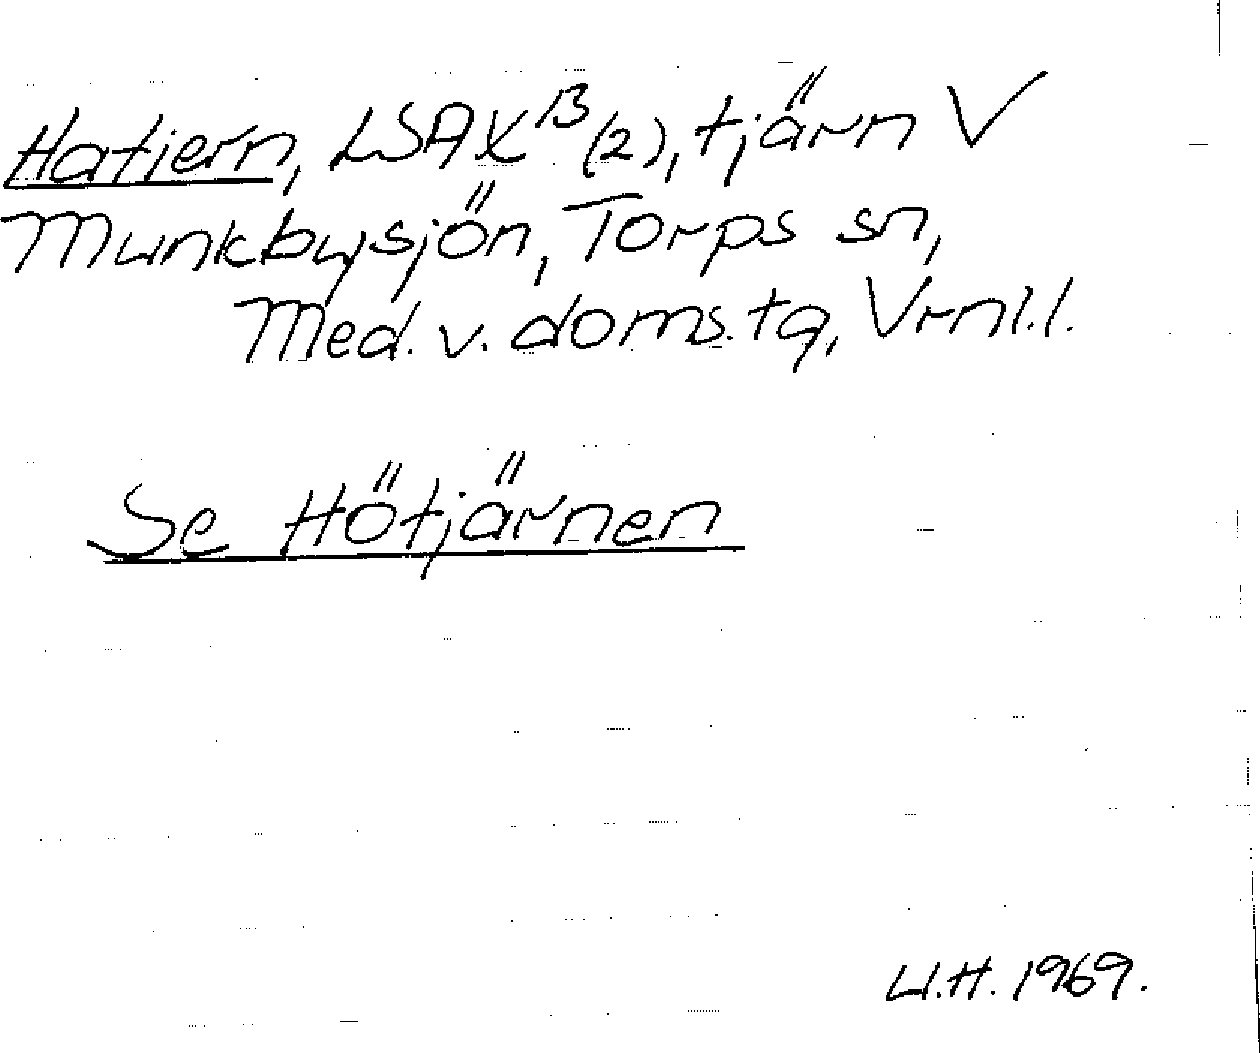 Hatjern, LSA X¹³ (2), tjärn V
Munkbysjön, Torps sn,
Med. v. doms. tg, Vrnl.l.
Se Hötjärnen
U.H. 1969.